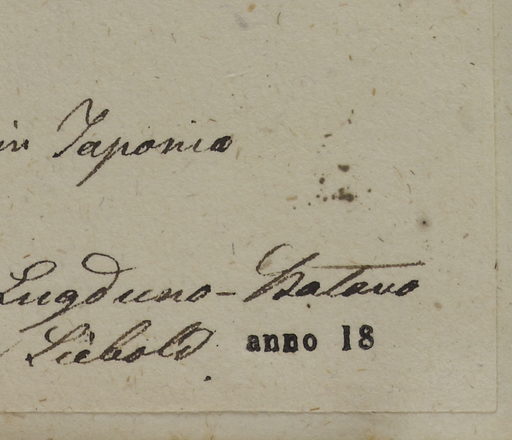 in Japonia
Lugduno-Batavo
Siebold. anno 18